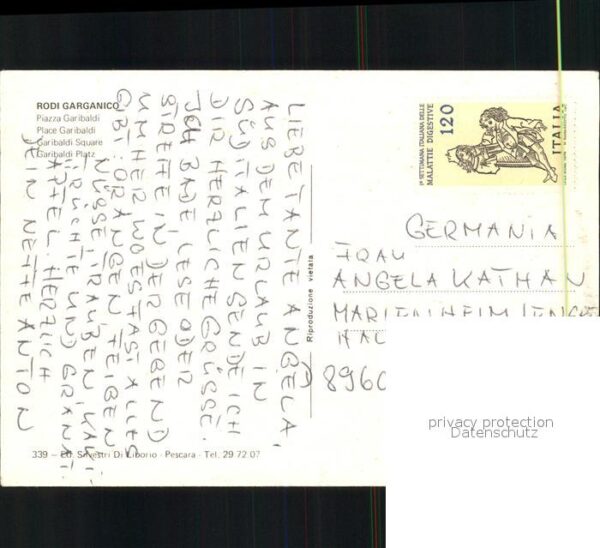 RODI GARGANICO
Piazza Garibaldi
Place Garibaldi
Garibaldi Square
Garibaldi Platz
LIEBE TANTE ANGELA,
AUS DEM URLAUB IN
SÜDITALIEN SENDE ICH
DIR HERZLICHE GRÜSSE.
ICH BADE LESE ODER
STREIFE IN DER GEGEND
UMHER WO ES FAST ALLES
GIBT: ORANGEN FEIGEN
NÜSSE TRAUBEN, KAK-
FRÜCHTE UND GRANAT-
ÄPFEL. HERZLICH
DEIN NEFFE ANTON
339 – Ed. Silvestri Di Liborio - Pescara - Tel. 29 72 07
Riproduzione vietata
1ª SETTIMANA ITALIANA DELLE
MALATTIE DIGESTIVE
120
ITALIA
GERMANIA
FRAU
ANGELA KATHAN
MARIENHEIM
8960
privacy protection
Datenschutz